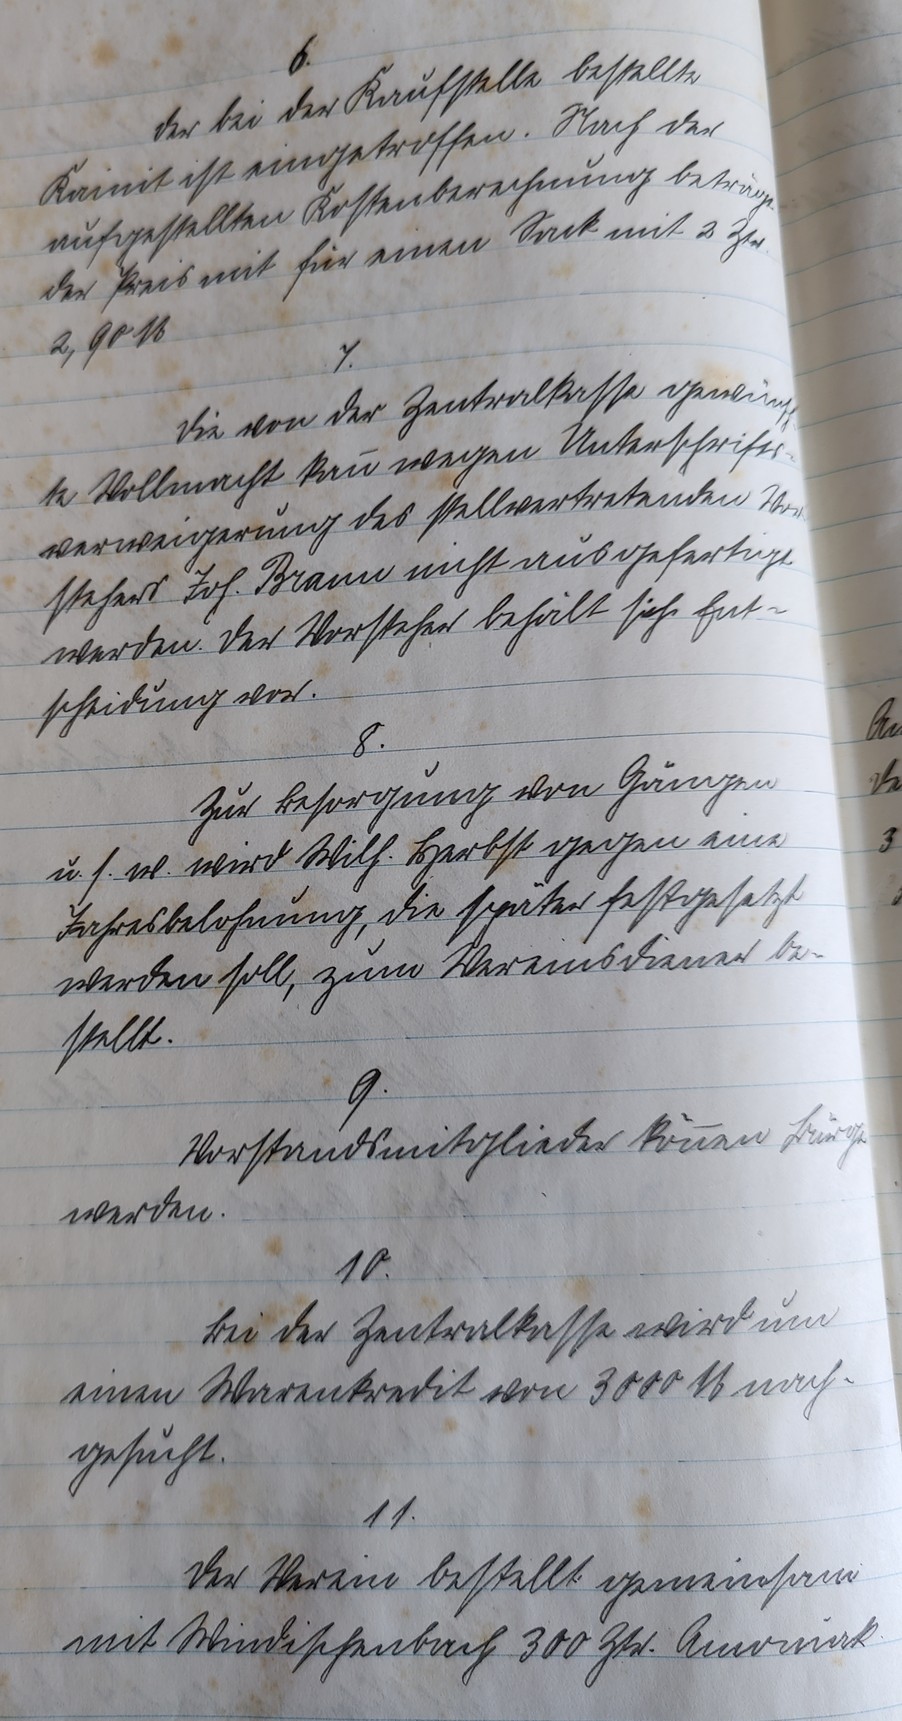 6.
Der bei der Kaufstelle bestellte
Kainit ist eingetroffen. Nach der
aufgestellten Kostenberechnung beträgt
der Preis mit für einen Sack mit 2 Ztr.
2,90 M
7.
Die von der Zentralkasse gewünsch-
te Vollmacht kan̄ wegen Unterschrifts-
verweigerung des stellvertretenden Vor-
stehers Joh. Braun nicht ausgefertigt
werden. Der Vorsteher behält sich Ent-
scheidung vor.
8.
Zur Besorgung von Gängen
u. s. w. wird Wilh. Herbst gegen eine
Jahresbelohnung, die später festgesetzt
werden soll, zum Vereinsdiener be-
stellt.
9.
Vorstandsmitglieder kön̄en Bürge
werden.
10.
Bei der Zentralkasse wird um
einen Warenkredit von 3000 M nach-
gesucht.
11.
Der Verein bestellt gemeinsam
mit Windischenbach 300 Ztr. Amoniak